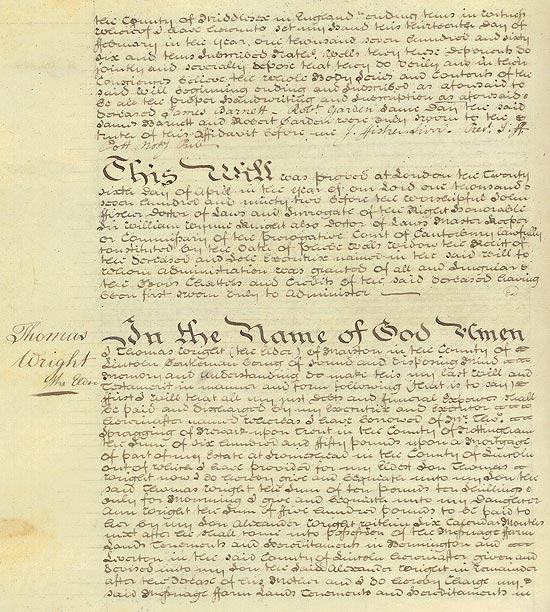 the County of Middlesex in England" ending thus in witness
whereof I have hereunto set my Hand this thirteenth Day of
ffebruary in the year, one thousand seven hundred and sixty
six and thus Subscribed Wells they these Deponents do
jointly and severally depose that they do verily and in their
Consciences believe the whole Body Series and Contents of the
said Will beginning ending and subscribed as aforesaid to
be all the proper Handwriting and Subscription as aforesaid
deceased James Barnett - Robt Garden Same Day the said
James Barnett and Robert Garden were duly sworn to the
truth of this Affidavit before me J. Fisher Surr. Prest
Not.y Pub
This Will was proved at London the Twenty
sixth Day of April in the year of our Lord one thousand
seven hundred and ninety two before the Worshipful John
ffisher Doctor of Laws and Surrogate of the Right Honorable
Sir William Wynne Knight also Doctor of Laws Master Keeper
or Commissary of the Prerogative Court of Canterbury lawfully
constituted by the Oath of Wells Widow the Relict of
the Deceased and Sole Executrix named in the said Will to
whom Administration was granted of all and Singular
the Goods Chattels and Credits of the said deceased having
been first sworn duly to Administer
Thomas
Wright
the Elder
In the Name of God Amen
I Thomas Wright (the Elder) of Marston in the County of
Lincoln Gentleman being of sound and disposing Mind
Memory and Understanding do make this my last Will and
Testament in manner and form following (that is to say)
ffirst I will that all my just Debts and funeral Expences shall
be paid and discharged by my Executrix and Executor
hereinafter named Whereas I have borrowed of Mr Thos
Spragging of Newark upon Trent in the County of Nottingham
the Sum of six hundred and ffifty pounds upon a Mortgage
of part of my Estate at in the County of Lincoln
out of which I have provided for my Eldest Son Thomas
Wright now I do hereby give and bequeath unto my Son the
said Thomas Wright the Sum of ten pounds ten Shillings
only for Mourning I give and bequeath unto my Daughter
Ann Wright the Sum of ffive hundred pounds to be paid to
her by my Son Alexander Wright within Six Calendar Months
next after he shall come into possession of the Messuage ffarm
Lands Tenements and Hereditaments in Bennington and
ffoston in the said County of Lincoln hereinafter given and
devised unto my Son the said Alexander Wright in Remainder
after the Decease of his Mother and I do hereby Charge my
said Messuage ffarm Lands Tenements and Hereditaments in